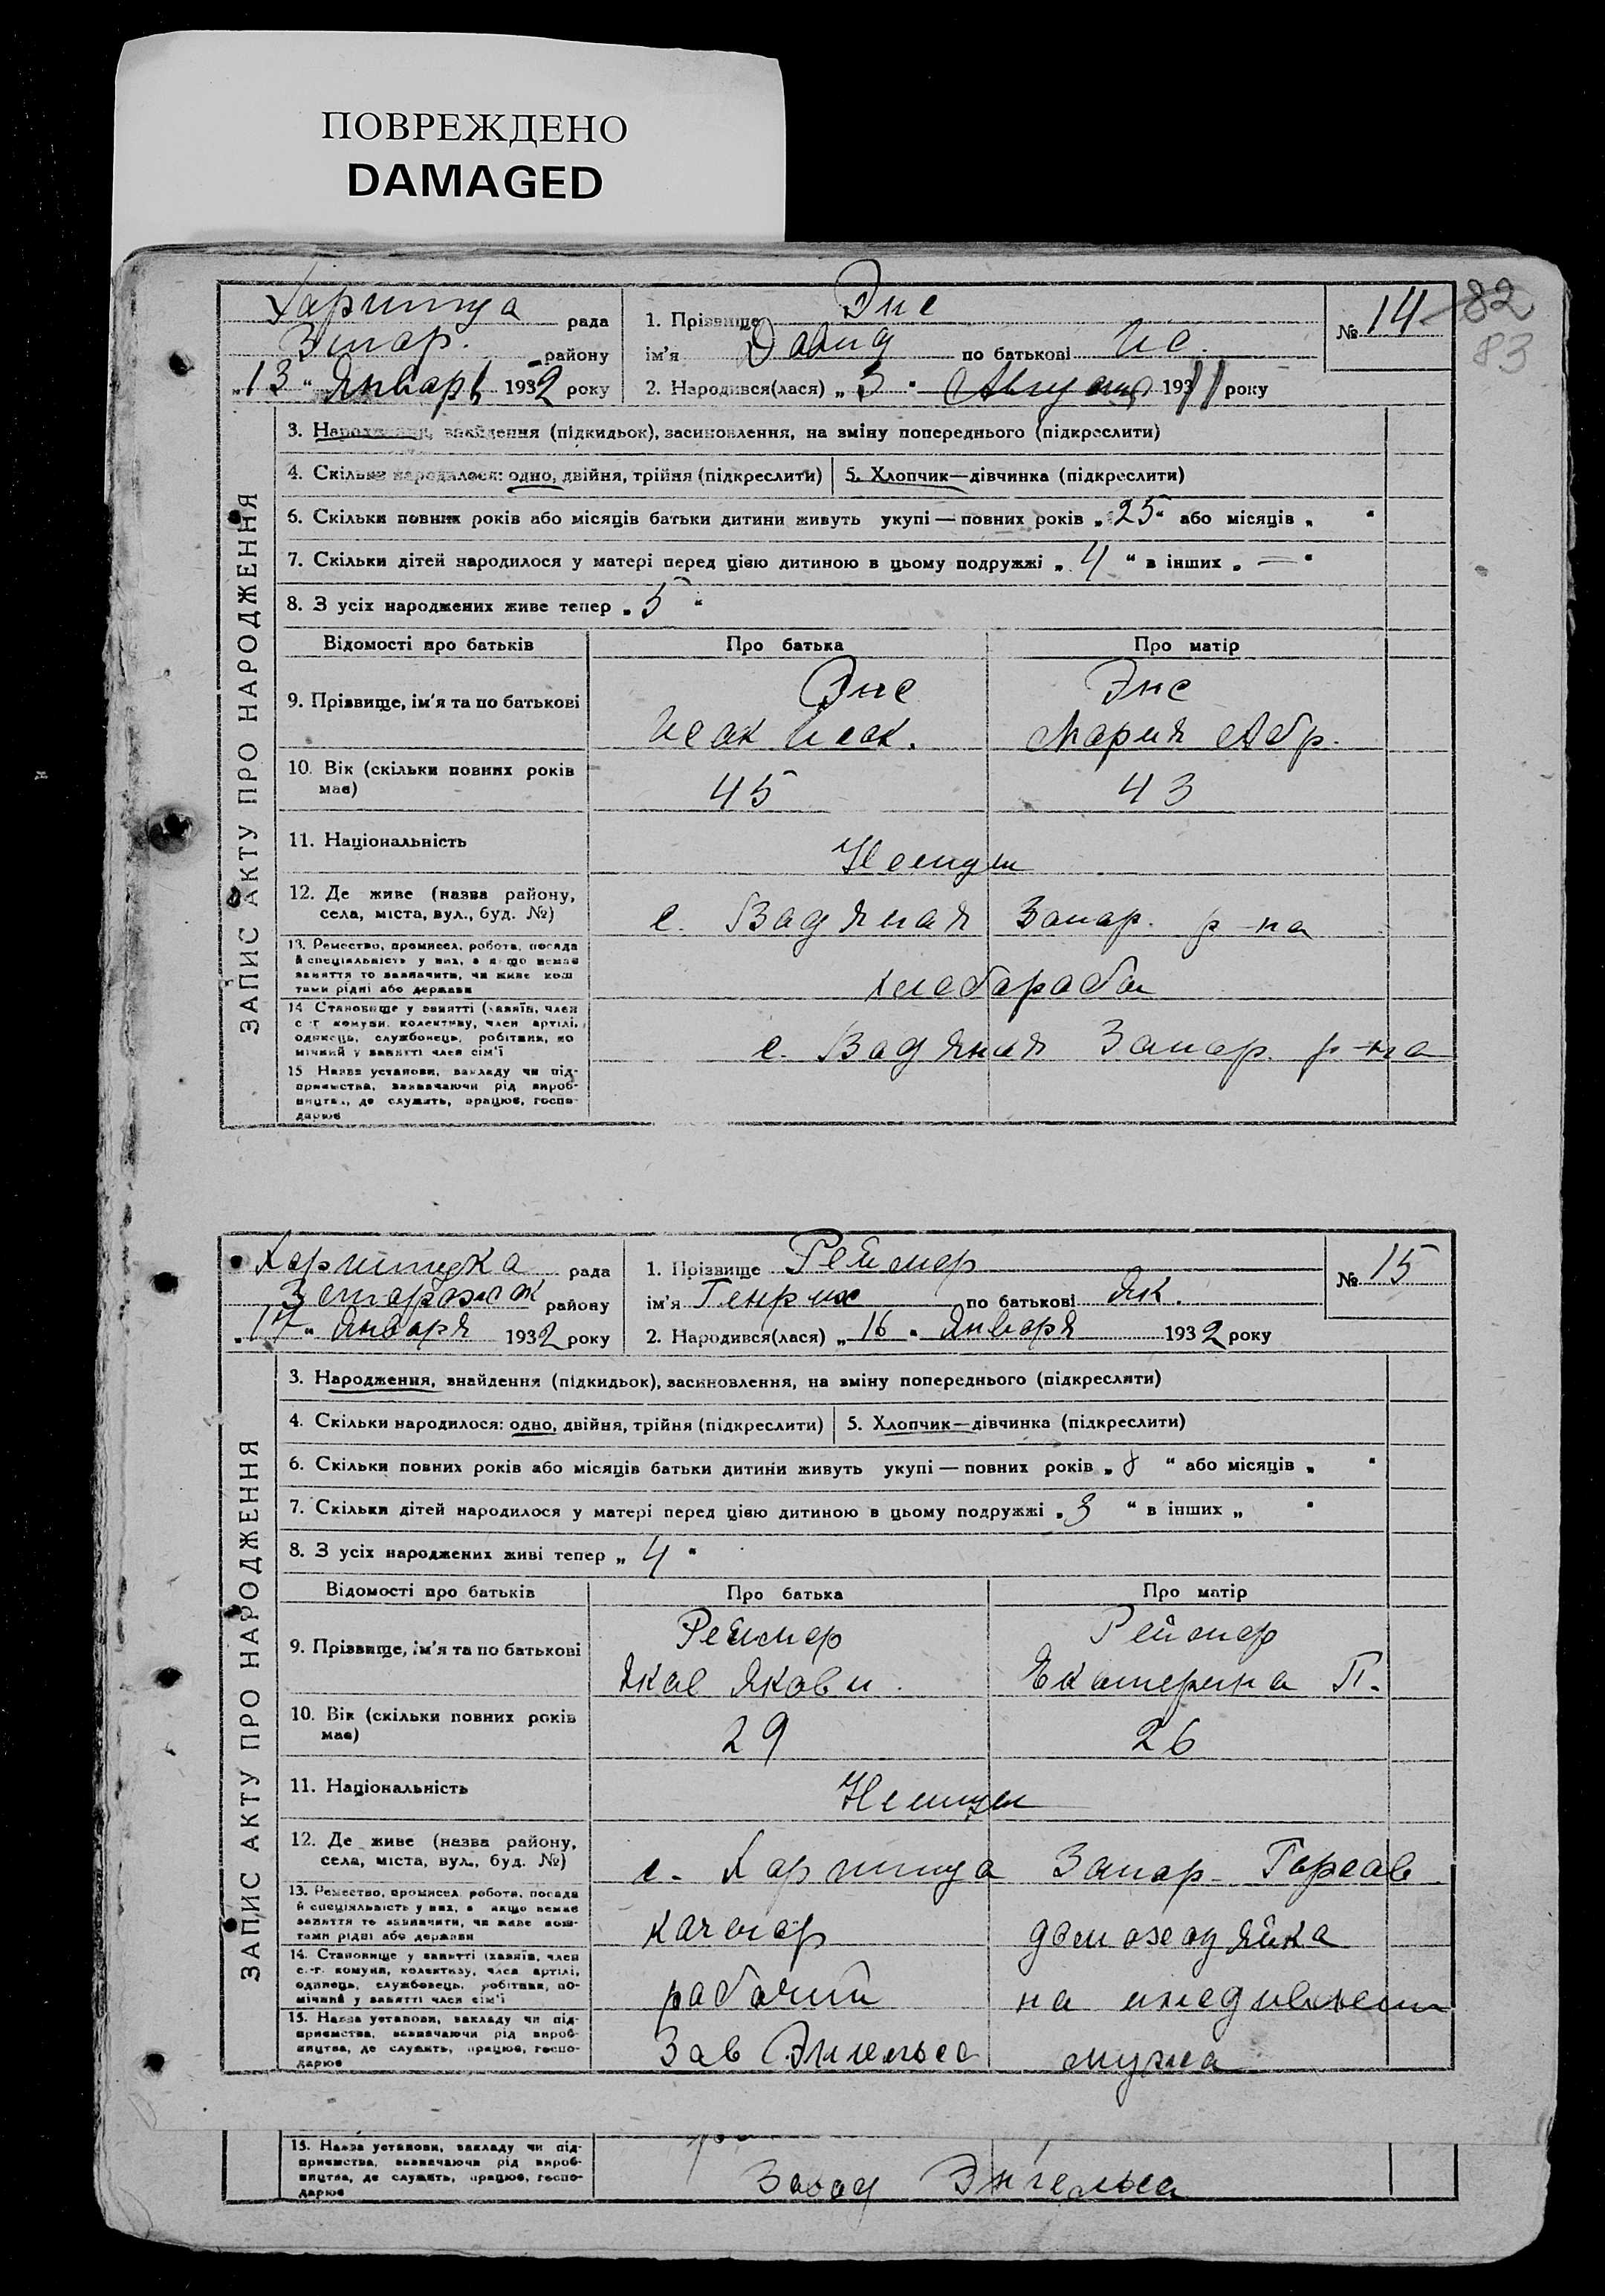 ПОВРЕЖДЕНО
DAMAGED
82
83
рада
Запор. району
„13“ Январь 1932 року
1. Прізвище Энс
ім'я Давид по батькові Ис.
№ 14
2. Народився(лася) „5“ Августа 1931 року
3. Народження, знайдення (підкидьок), засиновлення, на зміну попереднього (підкреслити)
4. Скільки народилося: одно, двійня, трійня (підкреслити) 5. Хлопчик—дівчинка (підкреслити)
6. Скільки повних років або місяців батьки дитини живуть укупі — повних років „25“ або місяців „ “
7. Скільки дітей народилося у матері перед цією дитиною в цьому подружжі „4“ в інших „—“
8. З усіх народжених живе тепер „5“
ЗАПИС АКТУ ПРО НАРОДЖЕННЯ
Відомості про батьків Про батька Про матір
9. Прізвище, ім'я та по батькові Энс Энс
Исак Исак. Мария Абр.
10. Вік (скільки повних років має) 45 43
11. Національність Немцы
12. Де живе (назва району, села, міста, вул., буд. №) с. Вадяная Запор. р-на
13. Ремество, промисел, робота, посада
й спеціяльність у них, а якщо немає
заняття то зазначити, чи живе кош
тами рідні або держави
хлебаробы
14 Становище у занятті (хазяїн, член
с.-г. комуни, колективу, член артілі,
одинець, службовець, робітник, по
мічний у занятті член сім'ї
с. Вадяная Запор. р-на
15 Назва установи, закладу чи під-
приємства, зазначаючи рід вироб-
ництва, де служить, працює, госпо-
дарює
рада
району
„17“ Января 1932 року
1. Прізвище Реймер
ім'я Генрих по батькові Як.
№ 15
2. Народився(лася) „16“ Января 1932 року
3. Народження, знайдення (підкидьок), засиновлення, на зміну попереднього (підкреслити)
4. Скільки народилося: одно, двійня, трійня (підкреслити) 5. Хлопчик—дівчинка (підкреслити)
6. Скільки повних років або місяців батьки дитини живуть укупі — повних років „8“ або місяців „ “
7. Скільки дітей народилося у матері перед цією дитиною в цьому подружжі „3“ в інших „ “
8. З усіх народжених живі тепер „4“
ЗАПИС АКТУ ПРО НАРОДЖЕННЯ
Відомості про батьків Про батька Про матір
9. Прізвище, ім'я та по батькові Реймер Реймер
Яков Якови. Екатерина П.
10. Вік (скільки повних років має) 29 26
11. Національність Немцы
12. Де живе (назва району, села, міста, вул., буд. №) с. Запор. Горсов
13. Ремество, промисел, робота, посада
й спеціяльність у них, а якщо немає
заняття то зазначити, чи живе кош-
тами рідні або держави
качегар домохозяйка
14. Становище у занятті (хазяїн, член
с.-г. комуни, колективу, член артілі,
одинець, службовець, робітник, по-
мічний у занятті член сім'ї
рабочий на иждивении
15. Назва установи, закладу чи під-
приємства, зазначаючи рід вироб-
ництва, де служить, працює, госпо-
дарює
Зав Энгельса мужа
15. Назва установи, закладу чи під-
приємства, зазначаючи рід вироб-
ництва, де служить, працює, госпо-
дарює
Завод Энгельса